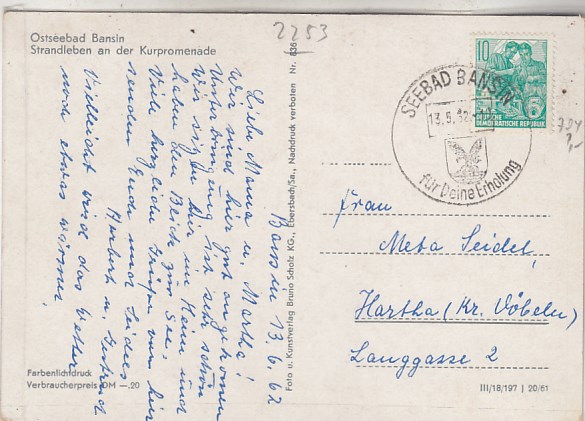 Ostseebad Bansin
Strandleben an der Kurpromenade
2253
Bansin 13.6.62
Liebe Mama u. Martha!
Wir sind hier gut angekommen
Unterbringung ist sehr schön
wir sitzen hier im Heim und
haben den Blick zur See.
Viele herzliche Grüße von hier
senden Euch und Seidels
Herbert u.
Vielleicht wird das Wetter
noch etwas wärmer.
Foto u. Kunstverlag Bruno Scholz KG., Ebersbach/Sa., Nachdruck verboten Nr. 636
10
DEUTSCHE
DEMOKRATISCHE REPUBLIK
SEEBAD BANSIN
für Deine Erholung
Frau
Meta Seidel,
Hartha (Kr. Döbeln)
Langgasse 2
Farbenlichtdruck
Verbraucherpreis DM —.20
III/18/197 | 20/61